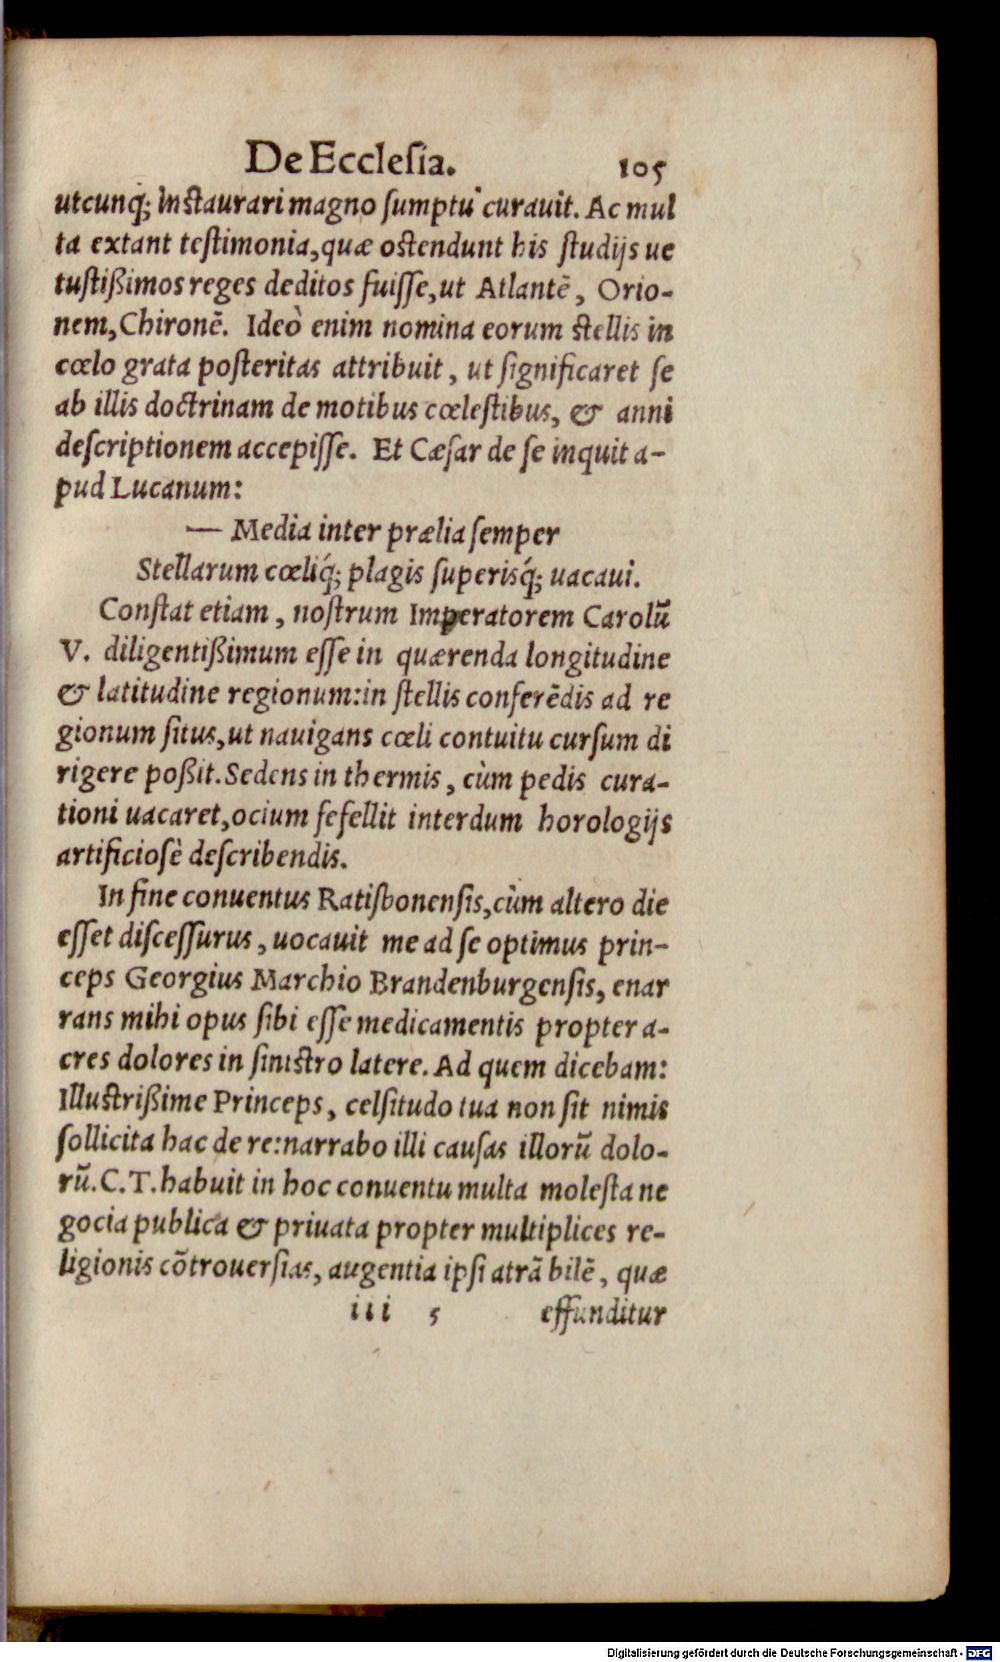 De Ecclesia. 105
utcunq́; instaurari magno sumptu curauit. Ac mul
ta extant testimonia, quæ ostendunt his studijs ue
tustißimos reges deditos fuisse, ut Atlantē, Orio-
nem, Chironē. Ideò enim nomina eorum stellis in
cœlo grata posteritas attribuit, ut significaret se
ab illis doctrinam de motibus cœlestibus, & anni
descriptionem accepisse. Et Cæsar de se inquit a-
pud Lucanum:
— Media inter prælia semper
Stellarum cœliq́; plagis superisq́; uacaui.
Constat etiam, nostrum Imperatorem Carolū
V. diligentißimum esse in quærenda longitudine
& latitudine regionum: in stellis conferēdis ad re
gionum situs, ut nauigans cœli contuitu cursum di
rigere poßit. Sedens in thermis, cùm pedis cura-
tioni uacaret, ocium fefellit interdum horologijs
artificiosè describendis.
In fine conuentus Ratisbonensis, cùm altero die
esset discessurus, uocauit me ad se optimus prin-
ceps Georgius Marchio Brandenburgensis, enar
rans mihi opus sibi esse medicamentis propter a-
cres dolores in sinistro latere. Ad quem dicebam:
Illustrißime Princeps, celsitudo tua non sit nimis
sollicita hac de re: narrabo illi causas illorū dolo-
rū. C. T. habuit in hoc conuentu multa molesta ne
gocia publica & priuata propter multiplices re-
ligionis cōtrouersias, augentia ipsi atrā bilē, quæ
iii 5 effunditur
Digitalisierung gefördert durch die Deutsche Forschungsgemeinschaft - DFG